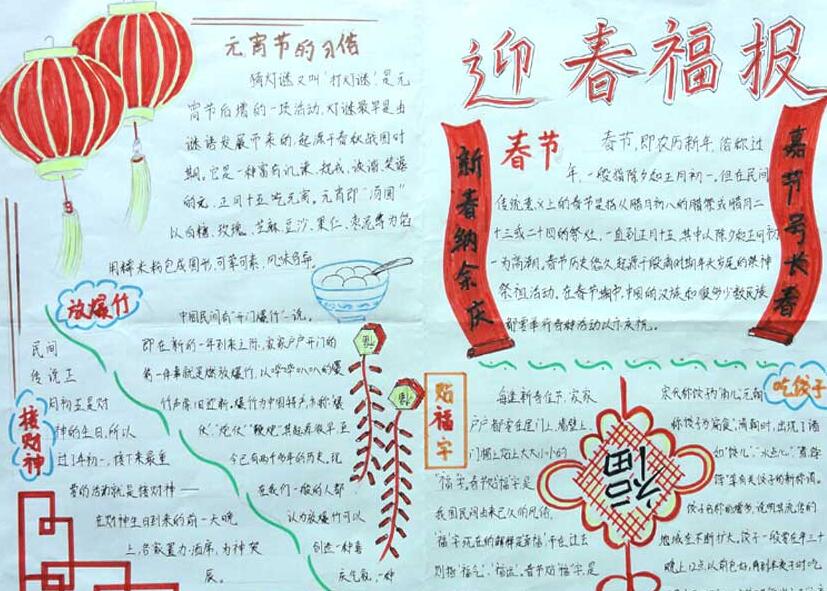 元宵节的习俗
猜灯谜又叫"打灯谜",是元
宵节后增的一项活动,灯谜最早是由
谜语发展而来的,起源于春秋战国时
期。它是一种富有讥谏、规戒、诙谐、笑谑
的 正月十五吃元宵。元宵即"汤圆"
以白糖、玫瑰、芝麻、豆沙、果仁、枣泥等为馅
用糯米粉包成圆形,可荤可素,风味各异。
放爆竹
中国民间有"开门爆竹"一说。
即在新的一年到来之际,家家户户开门的
第一件事就是燃放爆竹,以哔哔叭叭的爆
竹声除旧迎新。爆竹为中国特产,亦称"爆
仗"、"炮仗"、"鞭炮"。其起源很早,至
今已有两千多年的历史。现
在我们一般的人都
认为放爆竹可以
创造一种喜
庆气氛,一种
接财神
民间
传说正
月初五是财
神的生日,所以
过了年初一,接下来最重
要的活动就是接财神——
在财神生日到来的前一天晚
上,各家置办酒席,为神贺
辰。
迎春福报
新春纳余庆
嘉节号长春
春节
春节,即农历新年,俗称过
年,一般指除夕和正月初一。但在民间
传统意义上的春节是指从腊月初八的腊祭或腊月二
十三或二十四的祭灶,一直到正月十五,其中以除夕和正月初
一为高潮。春节历史悠久,起源于殷商时期年头岁尾的祭神
祭祖活动。在春节期间,中国的汉族和很多少数民族
都要举行各种活动以示庆祝。
贴福字
每逢新春佳节,家家
户户都要在屋门上、墙壁上、
门楣上贴上大大小小的
"福"字。春节贴"福"字,是
我国民间由来已久的风俗。
"福"字现在的解释是"幸福",而在过去
则指"福气"、"福运"。春节贴"福"字,是
福
吃饺子
宋代称饺子为"角儿",元朝
称饺子为"扁食"。清朝时,出现了诸
如"饺儿"、"水点心"、"煮饽
饽"等有关饺子的新称谓。
饺子名称的增多,说明其流传的
地域在不断扩大。饺子一般要在年三十
晚上12点以前包好,待到半夜子时吃